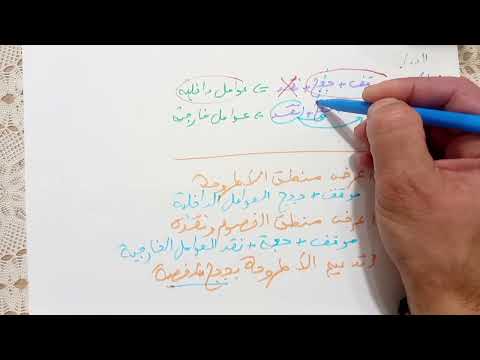 موقف + حجج + نقد = عوامل داخلية
نقد = عوامل خارجية
اعرض منطق الأطروحة
موقف + حجج العوامل الداخلية
اعرض منطق الخصوم ونقده
موقف + حجة + نقد العوامل الخارجية
تدعيم الأطروحة بحجج